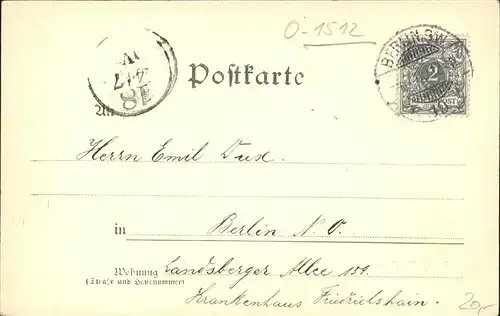 O-1512
BERLIN S.W.
Postkarte
2
POST
An
Herrn Emil Dux.
in
Berlin N. O.
Wohnung Landsberger Allee 159.
(Straße und Hausnummer)
Krankenhaus Friedrichshain.
20,-